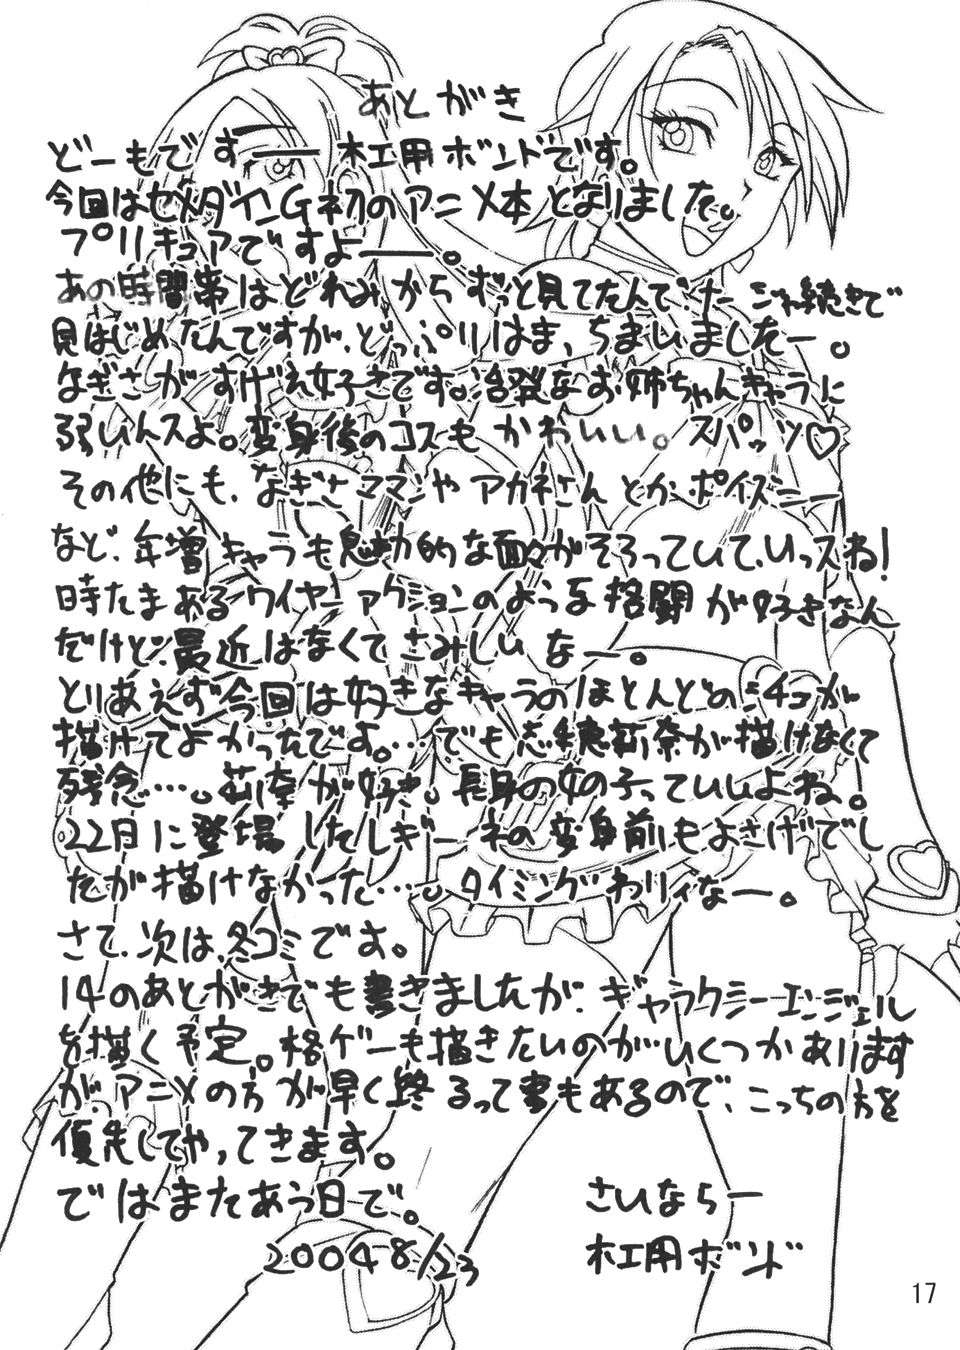 あとがき
どーもですー 木工用ボンドです。
今回はセメダインG初のアニメ本となりました。
プリキュアですよー。
あの時間帯はどれみからずっと見てたんで、た 続きで
見はじめたんですが、どっぷりはま、ちまいましたー。
なぎさがすげえ好きです。活発なお姉ちゃんキャラに
弱いんスよ。変身後のコスもかわいい。スパッツ♡
その他にも、なぎさママンやアカネさんとかポイズニー
など、年増キャラも魅力的な面々がそろっていて、いっスね!
時たまあるワイヤーアクションのような格闘が好きなん
だけど、最近はなくてさみしいなー。
とりあえず今回は好きなキャラのほとんどのシチュが
描けてよかったです。…でも志穂莉奈が描けなくて
残念…。莉奈が好き。長身の女の子っていいよね。
22日に登場したレギーネの変身前もよさげでし
たが描けなかった…。タイミングわりィなー。
さて、次は、冬コミです。
14のあとがきでも書きましたが、ギャラクシーエンジェル
を描く予定。格ゲーも描きたいのが…いくつかあります
が、アニメの方が早く終るって事もあるので、こっちの方を
優先してやってきます。
ではまたあう日で。
さいならー
2004 8/23
木工用ボンド
17